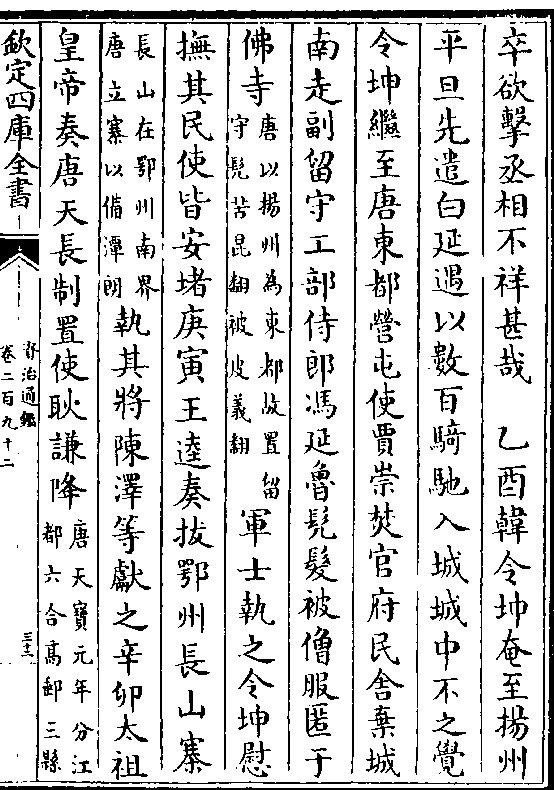 卒欲擊丞相不祥甚哉　乙酉韓令坤奄至揚州
平旦先遣白延遇以數百騎馳入城城中不之覺
令坤繼至唐東都營屯使賈崇焚官府民舍棄城
南走副留守工部侍郎馮延魯髠髮被僧服匿于
佛寺唐以揚州為東都故置留守髠苦昆翻被皮義翻軍士執之令坤慰
撫其民使皆安堵庚寅王逵奏拔鄂州長山寨
長山在鄂州南界唐立寨以備潭朗執其將陳澤等獻之辛卯太祖
皇帝奏唐天長制置使耿謙降唐天寶元年分江都六合高郵三縣
欽定四庫全書
資治通鑑
卷二百九十二
三十三